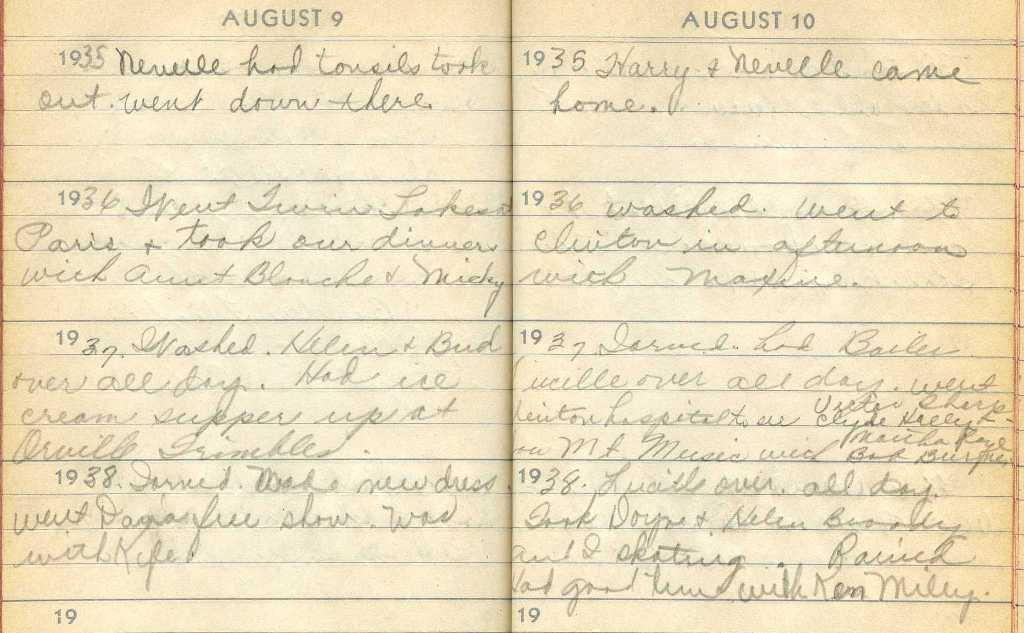 AUGUST 9
1935 Nevelle had tonsils took
out. went down there.
1936 Went Twin Lakes
Paris & took our dinner
with Aunt Blanche & Micky
1937. Washed. Helen & Bud
over all day. Had ice
cream supper up at
Orville Trimbles.
1938. Ironed. Made new dress.
went Dana free show. Was
with Kyle.
19
AUGUST 10
1935 Harry & Nevelle came
home.
1936 washed. Went to
Clinton in afternoon
with Maxine.
1937 Ironed. had
Lucille over all day. went
Clinton hospital to see
Mt. Music with
Martha Raye
Bob Burns.
1938. Lucille over. all day.
Took Doyne & Helen
and I skating. Rained
Had good time with Ken Miley.
19